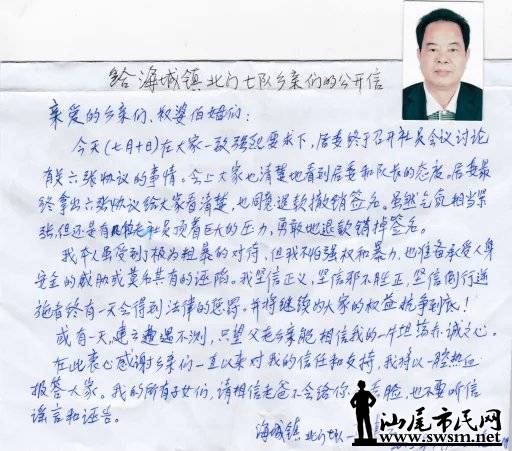 给海城镇北门七队乡亲们的公开信
亲爱的乡亲们、叔婆伯婶们:
今天(七月十日)在大家一致强烈要求下,居委终于召开社员会议讨论
有关六张协议的事情。会上大家也清楚地看到居委和队长的态度。居委最
终拿出六张协议给大家看清楚,也同意退款撤销签名。虽然气氛相当紧
张,但还是有几位老社员顶着巨大的压力,勇敢地退款销掉签名。
我本人虽受到极为粗暴的对待,但我不怕强权和暴力,也准备承受人身
安全的威胁或莫名其妙的诬陷。我坚信正义,坚信邪不胜正,坚信倒行逆
施者终有一天会得到法律的惩罚。并将继续为大家的权益抗争到底!
或有一天,建立遭遇不测,只望父老乡亲能相信我的一片坦荡赤诚之心。
在此衷心感谢乡亲们一直以来对我的信任和支持,我将以一腔热血
报答大家。我的所有子女们,请相信老爸不会给你 丢脸,也不要听信
谣言和诬告。
海城镇北门七队一
汕尾市民网
www.swsm.net